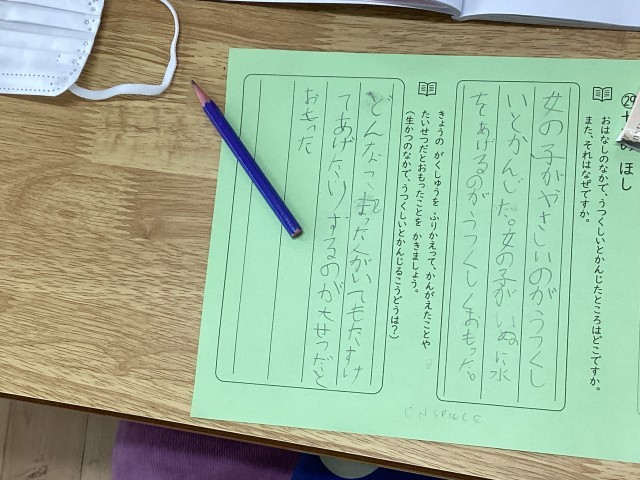 ㉙ 七 の ほし
おはなしのなかで、うつくしいとかんじたところはどこですか。
また、それはなぜですか。
女の子がやさしいのがうつくし
いとかんじた。女の子がいぬに水
をあげるのがうつくしくおもった。
きょうの がくしゅうを ふりかえって、かんがえたことや
たいせつだとおもったことを かきましょう。
(生かつのなかで、うつくしいとかんじるこうどうは?)
どんなこまったくがいてもたすけ
てあげたりするのが大せつだと
おもった